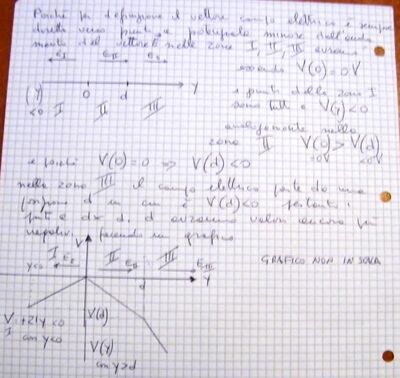 Poiché per definizione il vettore campo elettrico è sempre
diretto verso punti a potenziale minore dall'anda
mento del vettore E nelle zone I, II, III avremo
E_I E_II E_III
essendo V(0)=0V
0 d Y
(Y) <0 I II III
e punti della zona I
sono tutti a V(y)<0
analogamente nella
zona II V(0)>V(d)
=0V <0V
e poiché V(0)=0 => V(d)<0
nella zona III il campo elettrico parte da una
posizione d in cui è V(d)<0 pertanto i
punti a dx di d avranno valori ancora più
negativi facendo un grafico
V I II III GRAFICO NON IN SCALA
y<0 E_I E_II E_III Y
d
V_I=+21y<0
con y<0
V(d)
V(y)
con y>d